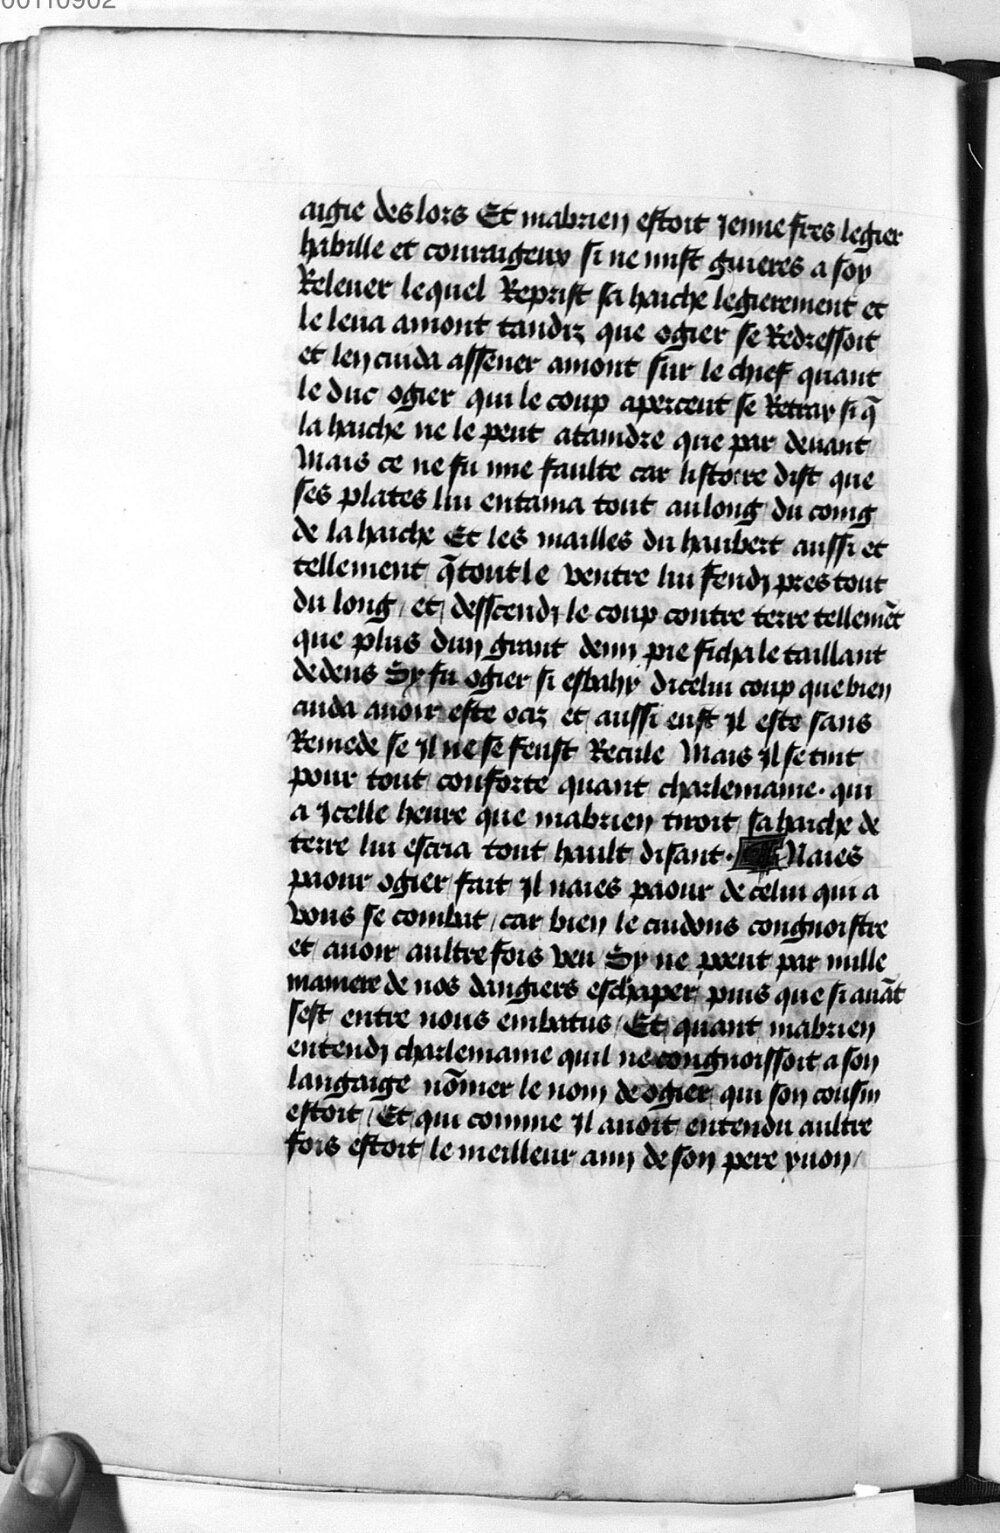 00110902
aigie des lors Et mabrien estoit jenne fres legier
habille et couraigeux si ne mist guieres a soy
Relever lequel Reprist sa haiche legierement et
le leva amont tandiz que ogier se Redressoit
et len cuida assener amont sur le chief quant
le duc ogier qui le coup apercent se Retray si q̄
la haiche ne le peut ataindre que par devant
Mais ce ne fu mie faulte car listoire dist que
ses plates lui entama tout au long du coing
de la haiche Et les mailles du haubert aussi et
tellement q̄ tout le ventre lui fendy pres tout
du long / et desscendy le coup contre terre tellemēt
que plus dun grant demi pie ficha le taillant
dedens Sy fu ogier si esbahy dicelui coup que bien
cuida avoir este ociz et aussi eust jl este sans
Remede se jl ne se feust Recule Mais jl se tint
pour tout conforte quant charlemaine · qui
a jcelle heure que mabrien tiroit sa haiche de
terre lui escria tout hault disant · Naies
paour ogier fait jl naies paour de celui qui a
vous se combat / car bien le cuidons congnoistre
et avoir aultre fois veu Sy ne peut par nulle
maniere de nos dangiers eschaper puis que si avāt
sest entre nous embatus / Et quant mabrien
entendy charlemaine quil ne congnoissoit a son
langaige nōmer le nom de ogier qui son cousin
estoit / Et qui comme jl avoit entendu aultre
fois estoit le meilleur amy de son pere yvon /